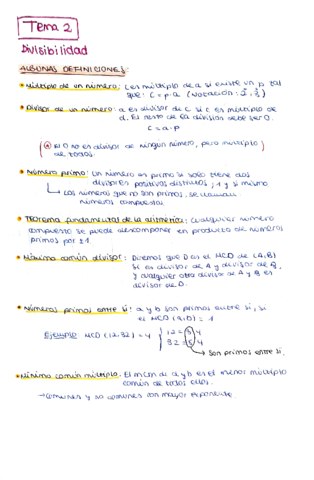 Tema 2
Divisibilidad
ALGUNAS DEFINICIONES:
• Múltiplo de un número: C es múltiplo de a si existe un p tal
que: C = p·a
• Divisor de un número: a es divisor de c si c es múltiplo de
El resto de la división debe ser 0.
c = a·p
El 0 no es divisor de ningún número, pero múltiplo
de todos.
• Número primo: Un número es primo si solo tiene dos
divisores positivos distintos, 1 y si mismo.
Los números que no son primos, se llaman
números compuestos.
• Teorema fundamental de la aritmética: Cualquier número
compuesto se puede descomponer en producto de números
primos por
• Máximo común divisor: Diremos que D es el MCD de (A,B)
si es divisor de A y divisor de B,
y cualquier otro divisor de A y B es
divisor de D.
• Números primos entre si: a y b son primos entre si, si
el MCD (a,b) = 1
Ejemplo: MCD (12,32) = 4 12 = 3·4
32 = 8·4
→ Son primos entre si.
• Mínimo común múltiplo: El mcm de a y b es el menor múltiplo
común de todos ellos.
→ comunes y no comunes con mayor exponente